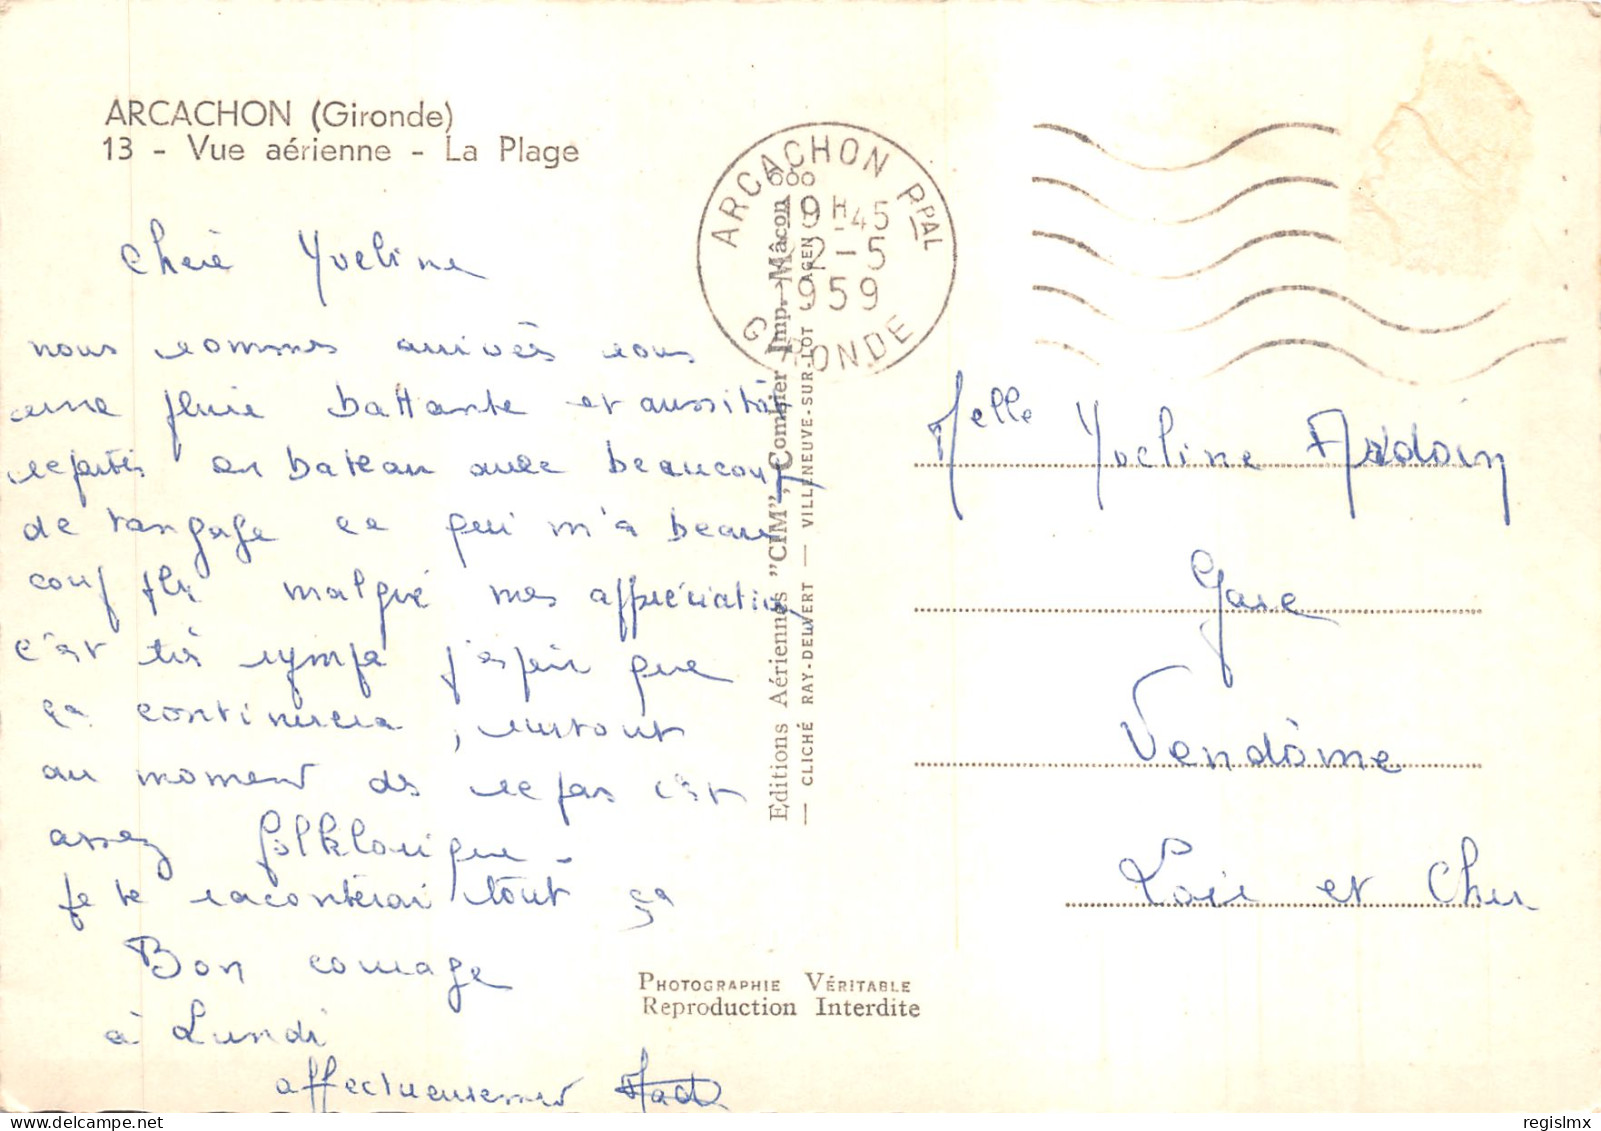 ARCACHON (Gironde)
13 - Vue aérienne - La Plage
Cherie Yveline
nous sommes arrivés sous
une pluie battante et aussitôt
repartis en bateau avec beaucoup
de tangage ce qui m'a beau
coup plu malgré mes appréciations
c'est très sympa j'espère que
ça continuera, surtout
au moment des repas c'est
assez folklorique -
Je te raconterai tout ça
Bon courage
à Lundi
affectueusement
Editions Aériennes "CIM", Combier Imp. Mâcon
— CLICHÉ RAY-DELVERT — VILLENEUVE-SUR-LOT AGEN
ARCACHON RPAL
19H45
2-5
1959
GIRONDE
Melle Yveline
Gare
Vendôme
Loir et Cher
PHOTOGRAPHIE VÉRITABLE
Reproduction Interdite
delcampe.net
regislmx